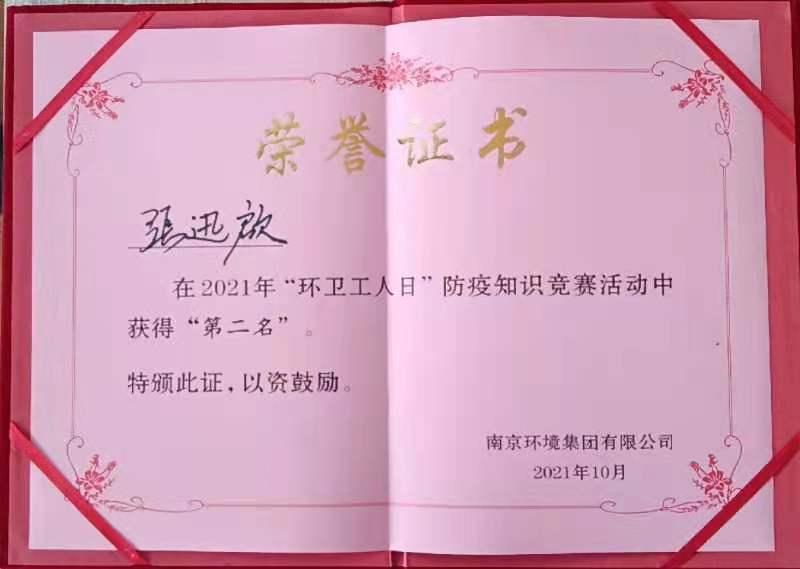 荣誉证书
张迅启
在2021年“环卫工人日”防疫知识竞赛活动中
获得“第二名”。
特颁此证，以资鼓励。
南京环境集团有限公司
2021年10月